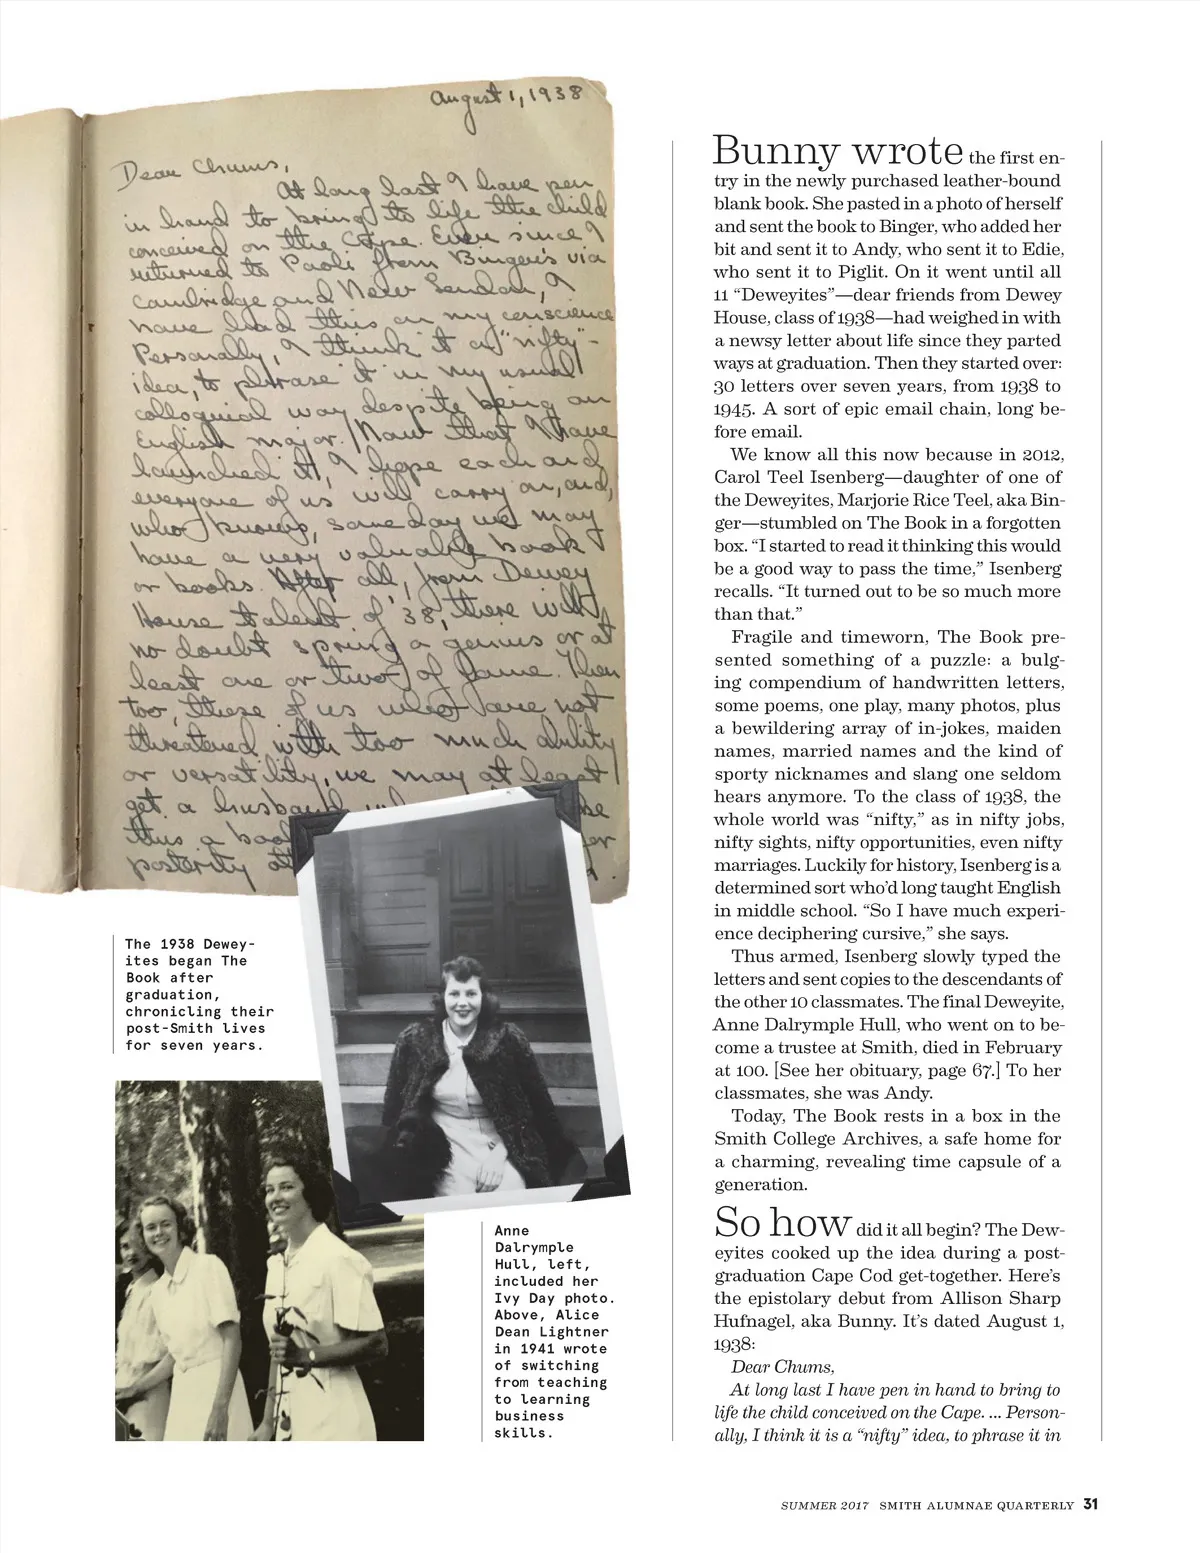 August 1, 1938
Dear Chums,
At long last I have pen
in hand to bring to life the child
conceived on the Cape. Ever since I
returned to Paoli from Binger's via
Cambridge and New London, I
have had this on my conscience
Personally, I think it a "nifty"
idea, to phrase it in my usual
colloquial way despite being an
English major. Now that I have
launched it, I hope each and
everyone of us will carry on, and,
who knows, someday we may
have a very valuable book
or books. After all, from Dewey
House talent of '38, there will
no doubt spring a genius or at
least one or two of fame. Then
too, those of us who are not
threatened with too much ability
or versatility, we may at least
get a husband
thus a
posterity
The 1938 Dewey-
ites began The
Book after
graduation,
chronicling their
post-Smith lives
for seven years.
Anne
Dalrymple
Hull, left,
included her
Ivy Day photo.
Above, Alice
Dean Lightner
in 1941 wrote
of switching
from teaching
to learning
business
skills.
Bunny wrote the first en-
try in the newly purchased leather-bound
blank book. She pasted in a photo of herself
and sent the book to Binger, who added her
bit and sent it to Andy, who sent it to Edie,
who sent it to Piglit. On it went until all
11 “Deweyites”—dear friends from Dewey
House, class of 1938—had weighed in with
a newsy letter about life since they parted
ways at graduation. Then they started over:
30 letters over seven years, from 1938 to
1945. A sort of epic email chain, long be-
fore email.
We know all this now because in 2012,
Carol Teel Isenberg—daughter of one of
the Deweyites, Marjorie Rice Teel, aka Bin-
ger—stumbled on The Book in a forgotten
box. “I started to read it thinking this would
be a good way to pass the time,” Isenberg
recalls. “It turned out to be so much more
than that.”
Fragile and timeworn, The Book pre-
sented something of a puzzle: a bulg-
ing compendium of handwritten letters,
some poems, one play, many photos, plus
a bewildering array of in-jokes, maiden
names, married names and the kind of
sporty nicknames and slang one seldom
hears anymore. To the class of 1938, the
whole world was “nifty,” as in nifty jobs,
nifty sights, nifty opportunities, even nifty
marriages. Luckily for history, Isenberg is a
determined sort who’d long taught English
in middle school. “So I have much experi-
ence deciphering cursive,” she says.
Thus armed, Isenberg slowly typed the
letters and sent copies to the descendants of
the other 10 classmates. The final Deweyite,
Anne Dalrymple Hull, who went on to be-
come a trustee at Smith, died in February
at 100. [See her obituary, page 67.] To her
classmates, she was Andy.
Today, The Book rests in a box in the
Smith College Archives, a safe home for
a charming, revealing time capsule of a
generation.
So how did it all begin? The Dew-
eyites cooked up the idea during a post-
graduation Cape Cod get-together. Here’s
the epistolary debut from Allison Sharp
Hufnagel, aka Bunny. It’s dated August 1,
1938:
Dear Chums,
At long last I have pen in hand to bring to
life the child conceived on the Cape. ... Person-
ally, I think it is a “nifty” idea, to phrase it in
SUMMER 2017 SMITH ALUMNAE QUARTERLY 31